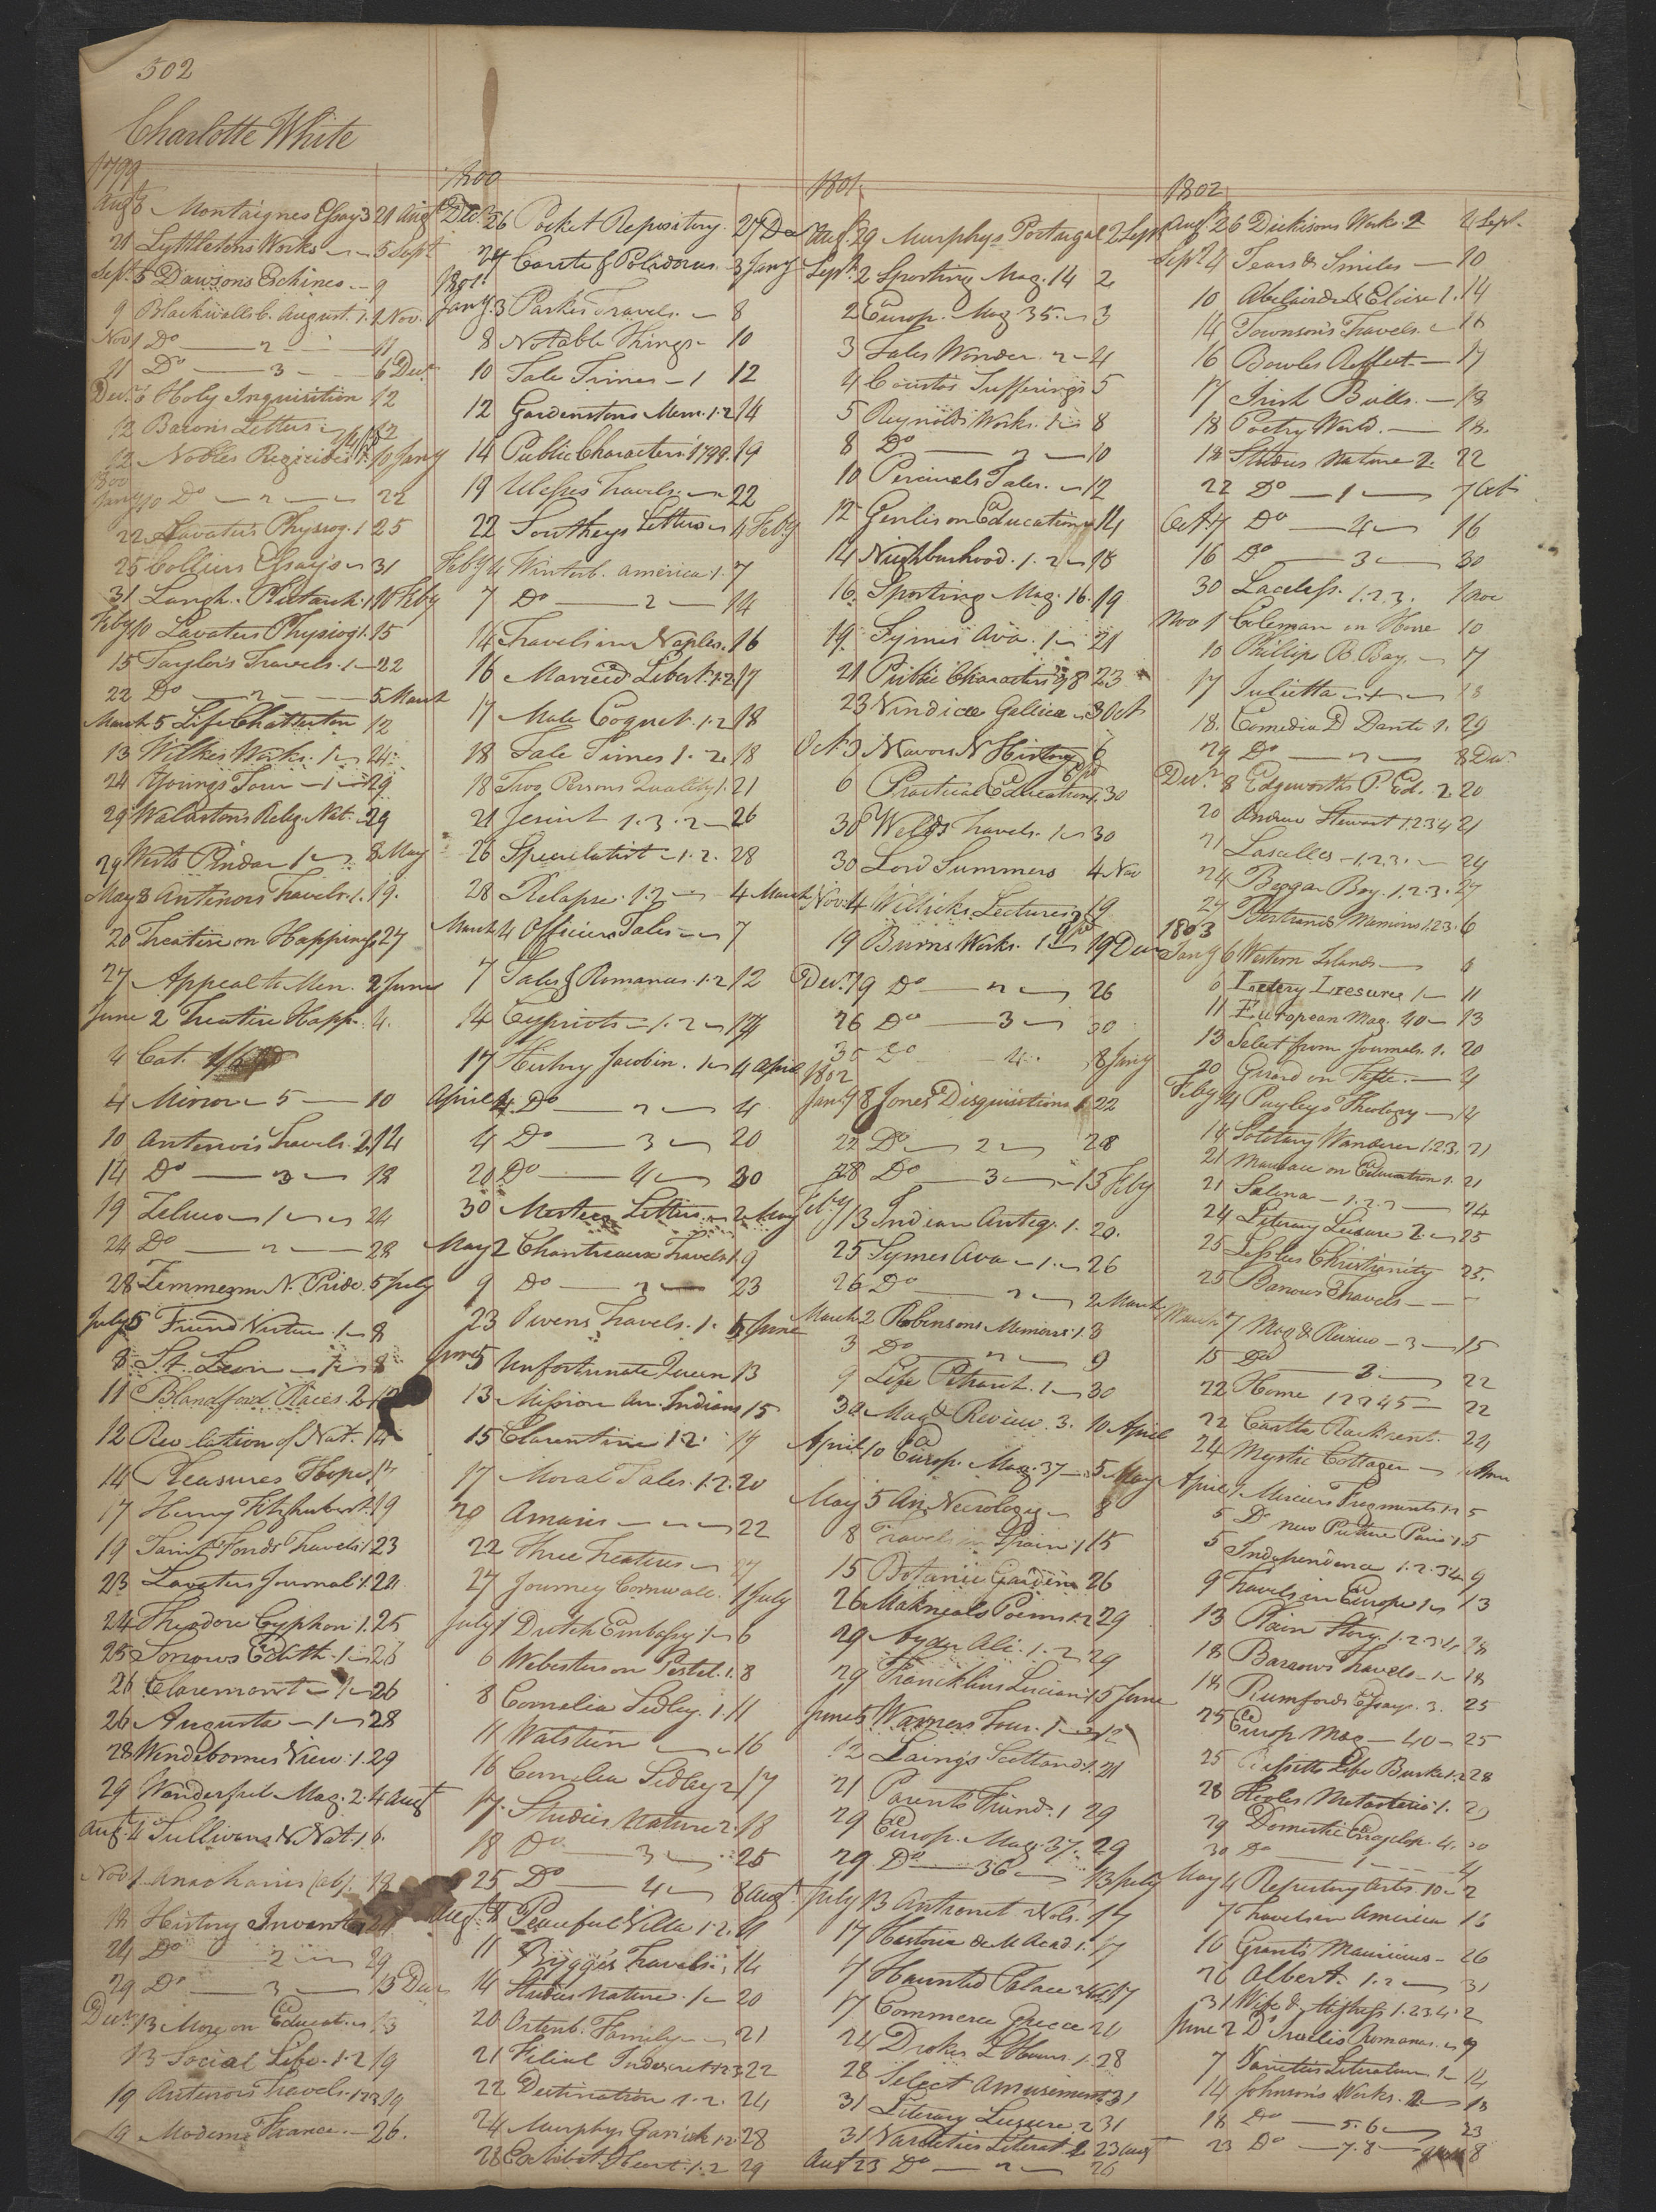 502
Charlotte White
1799
Augt 8 Montaignes Essays 3 21 Augt
21 Lyttletons Works 5 Sept
Sept. 5 Dawsons Eschines 9
9 Blackwells C. August. 1. 1 Nov.
Nov 1 Do 2 11
11 Do 3 6 Decr
Decr 6 Holy Inquisition 12
12 Bacons Letters 12
12 Nobles Regicides 1. 10 Jany
1800
Jany 10 Do 2 22
22 Lavaters Physiog. 1 25
25 Colliers Essays 31
31 Langh. Plutarch. 1 10 Feby
Feby 10 Lavaters Physiog 1. 15
15 Taylors Travels. 1 22
22 Do 2 5 March
March 5 Life Chatterton 12
13 Wilkes Works. 1 24
24 Youngs Tour 1 29
29 Wallastons Relig. Nat. 29
29 Wests Pindar 1 8 May
May 8 Antenors Travels. 1. 19.
20 Treatise on Happiness 27
27 Appeal to Men. 2 June
June 2 Treatise Happ. 4.
4 Cat.
4 Mirror 5 10
10 Antenors Travels. 2. 14
14 Do 3 18
19 Zeluco 1 24
24 Do 2 28
28 Zimmerm N. Pride. 5 July
July 5 Friend Virtue 1 8
8 St. Leon 1 8
11 Blandford Races. 2 12
12 Revelation of Nat. 14
14 Pleasures Hope 17
17 Henry Fitzhubert. 19
19 Saint Fonds Travels 1 23
23 Lavaters Journal 1. 24
24 Theodore Cyphon 1. 25
25 Sorrows Edith. 1 26
26 Claremont 1 26
26 Augusta 1 28
28 Wendebornes View. 1. 29
29 Wonderful Mag. 2. 4 Augt
Augt 4 Sullivans V. Nat. 1 6.
Nov 1 Anacharsis (ab). 18
18 History Invent 24
24 Do 2 29
29 Do 3 13 Decr
Decr 13 More on Educat. 13
13 Social Life. 1. 2 19
19 Antenors Travels. 1 2 3 19
19 Modern France. 26.
1800
Dec. 26 Pocket Repository. 27 Dec
27 Corite & Polidorus 3 Jany
1801
Jany. 3 Parkes Travels. 8
8 Notable Things 10
10 Tale Times 1 12
12 Gardenstons Mem. 1. 2 14
14 Public Characters 1799. 19
19 Ulysses Travels. 22
22 Southeys Letters 4 Feby
Feby 4 Winterb. America. 1. 7
7 Do 2 14
14 Travels in Naples. 16
16 Married Libert. 1. 2. 17
17 Male Coquet. 1. 2 18
18 Tale Times 1. 2. 18
18 Two Persons Quality 1. 21
21 Jesuit 1. 3. 2 26
26 Speculatist 1. 2. 28
28 Relapse. 1. 2 4 March
March 4 Officers Tales 7
7 Tales & Romances. 1. 2 12
14 Cypriots 1. 2 17
17 History Jacobin. 1 4 April
April 4. Do 2 4
4 Do 3 20
20 Do 4 30
30 Letters 2 May
May 2 Chantreaux Travels 1. 9
9 Do 2 23
23 Owens Travels. 1. 5 June
June 5 Unfortunate Queen 13
13 Mission Am. Indians 15
15 Clarentine 1 2 17
17 Moral Tales. 1. 2. 20
20 Amaris 22
22 Three Treatises 27
27 Journey Cornwall. 1 July
July 1 Dutch Embassy 1 6
6 Websters on Pestil. 1. 8
8 Cornelia Sedley. 1. 11
11 Walstein 16
16 Cornelia Sedley 2 17
17. Studies Nature 2. 18
18 Do 3 25
25 Do 4 8 Augt
Augt 8 Peaceful Villa 1. 2. 11
11 Bygges Travels. 14
14 Studies Nature. 1 20
20 Ortenb. Family 21
21 Filial Indiscret 1 2 3 22
22 Destination 1. 2. 24
24 Murphys Garrick 1. 2. 28
28 Exhibit. Heart. 1. 2 29
1801
Aug. 29 Murphys Portugal 2 Sept
Sept. 2 Sporting Mag. 14 2
2 Europ. Mag 35. 3
3 Tales Wonder. 2 4
4 Coustos Sufferings 5
5 Reynolds Works. 1 8
8 Do 2 10
10 Percivals Tales. 12
12 Genlis on Education 14
14 Neighbourhood. 1. 2 18
16. Sporting Mag. 16. 19
19. Symes Ava. 1 21
21 Public Characters 98 23
23 Vindiciæ Gallicæ 3 Oct
Oct. 3 Mavors N History 6
6 Practical Education 1. 30
30 Welds Travels. 1 30
30 Lord Summers 4 Nov
Nov. 4 Willichs Lectures 19
19 Burns Works. 1 19 Decr
Decr. 19 Do 2 26
26 Do 3 30
30 Do 4. 8 Jany
1802
Jany 8 Jones Disquisitions 1. 22
22 Do 2 28
28 Do 3 13 Feby
Feby 13 Indian Antiq. 1. 20.
25 Symes Ava 1. 26
26 Do 2 2 March
March 2 Robinsons Memoirs. 1. 3
3 Do 2 9
9 Life Petrarch. 1 30
30 Mag & Review. 3. 10 April
April 10 Europ. Mag. 37 5 May
May 5 An. Necrology 8
8 Travels in Spain 1 15
15 Botanic Garden 26
26 Makneals Poems 1. 2 29
29 Ayder Ali. 1. 2 29
29 Francklins Lucian 1 5 June
June 5 Warners Tour. 1 12
12 Laings Scotland 1. 21
21 Parents Friend. 1 29
29 Europ. Mag. 37. 29
29. Do 36 13 July
July 13 Antient Nols. 17
17 Historie de M Acad. 1. 17
7 Haunted Palace 17
17 Commerce Greece 24
24 Drakes L. Hours. 1. 28
28 Select Amusements 31
31 Literary Leisure. 2 31
31 Varieties Literat. 1 23 Augt
Augt 23 Do 2 26
1802
Augt. 26 Dickisons Works. 2 4 Sept.
Sept 4 Tears & Smiles 10
10 Abelaird & Eloise 1. 14
14 Townsons Travels. 16
16 Bowles Reflect. 17
17 Irish Bulls. 18
18 Poetry World. 18.
18 Studies Nature 2. 22
22 Do 1 7 Oct
Oct. 7 Do 4 16
16 Do 3 30
30 Lacelefs. 1. 2. 3. 1 Nov
Nov 1 Coleman on Horse 10
10 Phillips B. Bay. 17
17 Julietta 18
18. Comedia D Dante 1. 29
29 Do 2 8 Decr
Decr. 8 Edgworths P. Ed. 2 20
20 Andrew Stewart 1. 2. 3 4 21
21 Lascelles 1. 2. 3. 24
24 Beggar Boy. 1. 2. 3. 27
27 Memoirs 1. 2 3. 6
1803
Jany 6 Western Islands 6
6 Literary Liesure 1 11
11 European Mag. 40 13
13 Select from Journals. 1. 20
20 Gerard on Taste. 4
Feby 4 Payleys Theology 14
14 Solitary Wanderer 1. 2. 3. 21
21 on Education 1. 21
21 Salina 1. 2. 24
24 Literary Leisure 2. 25
25 Leslies Christianity 25.
25 Barrows Travels
March 7 Mag & Review 3 15
15 Do 3. 22
22 Home 1 2 3 4 5 22
22 Castle Rackrent. 24
24 Mystic Cottager 1 Apr
April 1 Merciers Fragments 1. 2 5
5 Do new Picture Paris 1. 5
5 Independence 1. 2. 3 4 9
9 Travels in Europe 1 13
13 Plain Story. 1. 2. 3 4 18
18 Barrows Travels 1 18
18 Rumfords Essays. 3. 25
25 Europ Mag 40 25
25 Bissetts Life Burke 1. 2 28
28 Hooles Metastasio 1. 29
29 Domestic Encyclop. 4. 30
30 Do 1 4
May 4 Repertory Arts. 10 7
7 Travels in America 16
16 Grants Mauricius 26
26 Albert. 1. 2 31
31 Wife & Mistress 1. 2 3 4 2
June 2 D'Israelis Romances. 9
7 Varieties Literature 1 14
14 Johnsons Works. 2 18
18 Do 5. 6 23
23 Do 7. 8 8